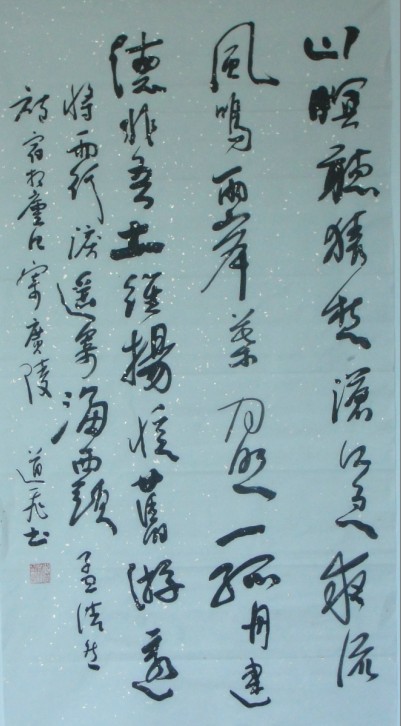 山暝聽猿愁滄江急夜流
風鳴兩岸葉月照一孤舟建
德非吾土維揚憶舊游還
將兩行淚遙寄海西頭 孟浩然
詩宿桐廬江寄廣陵 道飛书